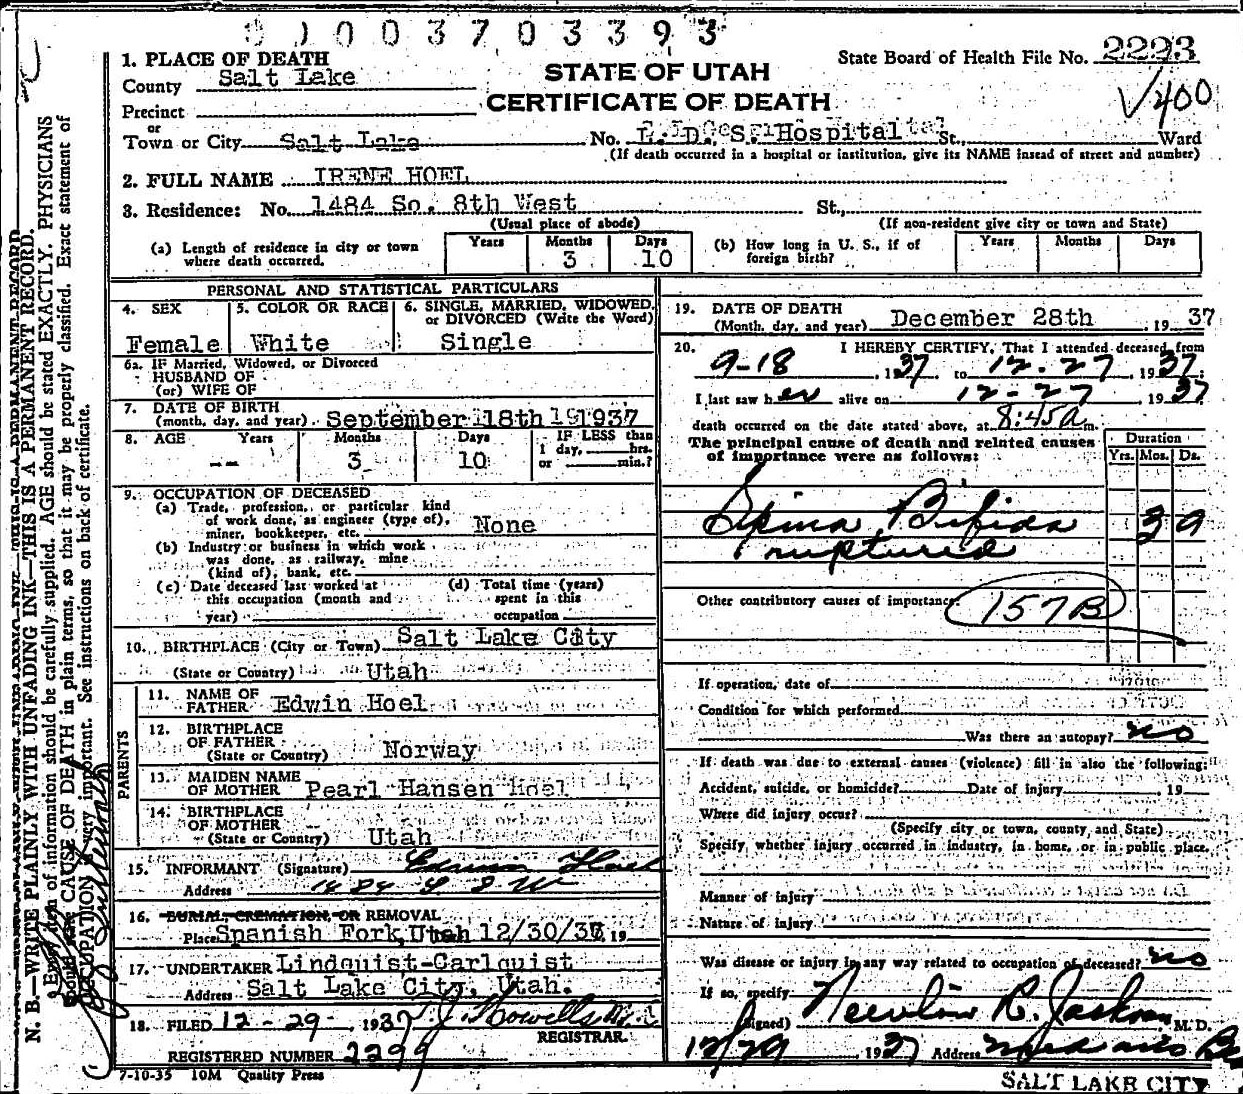 0 0 3 7 0 3 3 9 3
1. PLACE OF DEATH
County Salt Lake
Precinct
or
Town or City Salt Lake
STATE OF UTAH
CERTIFICATE OF DEATH
State Board of Health File No. 2223
√400
No. L. D. S. Hospital St., Ward
(If death occurred in a hospital or institution, give its NAME insead of street and number)
2. FULL NAME IRENE HOEL
3. Residence: No. 1484 So. 8th West St.,
(Usual place of abode) (If non-resident give city or town and State)
(a) Length of residence in city or town where death occurred. Years Months 3 Days 10
(b) How long in U. S., if of foreign birth? Years Months Days
PERSONAL AND STATISTICAL PARTICULARS
4. SEX Female
5. COLOR OR RACE White
6. SINGLE, MARRIED, WIDOWED, or DIVORCED (Write the Word) Single
6a. IF Married, Widowed, or Divorced
HUSBAND OF
(or) WIFE OF
7. DATE OF BIRTH
(month, day, and year) September 18th 1937
8. AGE Years -- Months 3 Days 10 IF LESS than 1 day, hrs. or min.?
9. OCCUPATION OF DECEASED
(a) Trade, profession, or particular kind
of work done, as engineer (type of),
miner, bookkeeper, etc. None
(b) Industry or business in which work
was done, as railway, mine
(kind of), bank, etc.
(c) Date deceased last worked at
this occupation (month and
year)
(d) Total time (years)
spent in this
occupation
10. BIRTHPLACE (City or Town) Salt Lake City
(State or Country) Utah
PARENTS
11. NAME OF FATHER Edwin Hoel
12. BIRTHPLACE OF FATHER (State or Country) Norway
13. MAIDEN NAME OF MOTHER Pearl Hansen Hoel
14. BIRTHPLACE OF MOTHER (State or Country) Utah
15. INFORMANT (Signature) Edwin Hoel
Address 1484 S 8 W
16. BURIAL, CREMATION, OR REMOVAL
Place Spanish Fork, Utah 12/30/37 19
17. UNDERTAKER Lindquist-Carlquist
Address Salt Lake City, Utah.
18. FILED 12-29- 1937 T. J. Howells M.D.
REGISTRAR.
REGISTERED NUMBER 2299
7-10-35 10M Quality Press
19. DATE OF DEATH
(Month, day, and year) December 28th, 1937
20. I HEREBY CERTIFY, That I attended deceased from
9-18, 1937 to 12-27, 1937:
I last saw her alive on 12-27, 1937
death occurred on the date stated above, at 8:45a m.
The principal cause of death and related causes
of importance were as follows:
Duration
Yrs. Mos. Ds.
Spina Bifida 3 9
ruptured
Other contributory causes of importance:
157B
If operation, date of
Condition for which performed
Was there an autopsy? no
If death was due to external causes (violence) fill in also the following:
Accident, suicide, or homicide? Date of injury, 19
Where did injury occur?
(Specify city or town, county, and State)
Specify whether injury occurred in industry, in home, or in public place.
Manner of injury
Nature of injury
Was disease or injury in any way related to occupation of deceased? no
If so, specify
(Signed) Newlin R. Jackson, M.D.
12/29, 1937 Address
SALT LAKE CITY
N. B.—WRITE PLAINLY WITH UNFADING INK—THIS IS A PERMANENT RECORD.
Every item of information should be carefully supplied. AGE should be stated EXACTLY. PHYSICIANS
should state CAUSE OF DEATH in plain terms, so that it may be properly classified. Exact statement of
OCCUPATION is very important. See instructions on back of certificate.